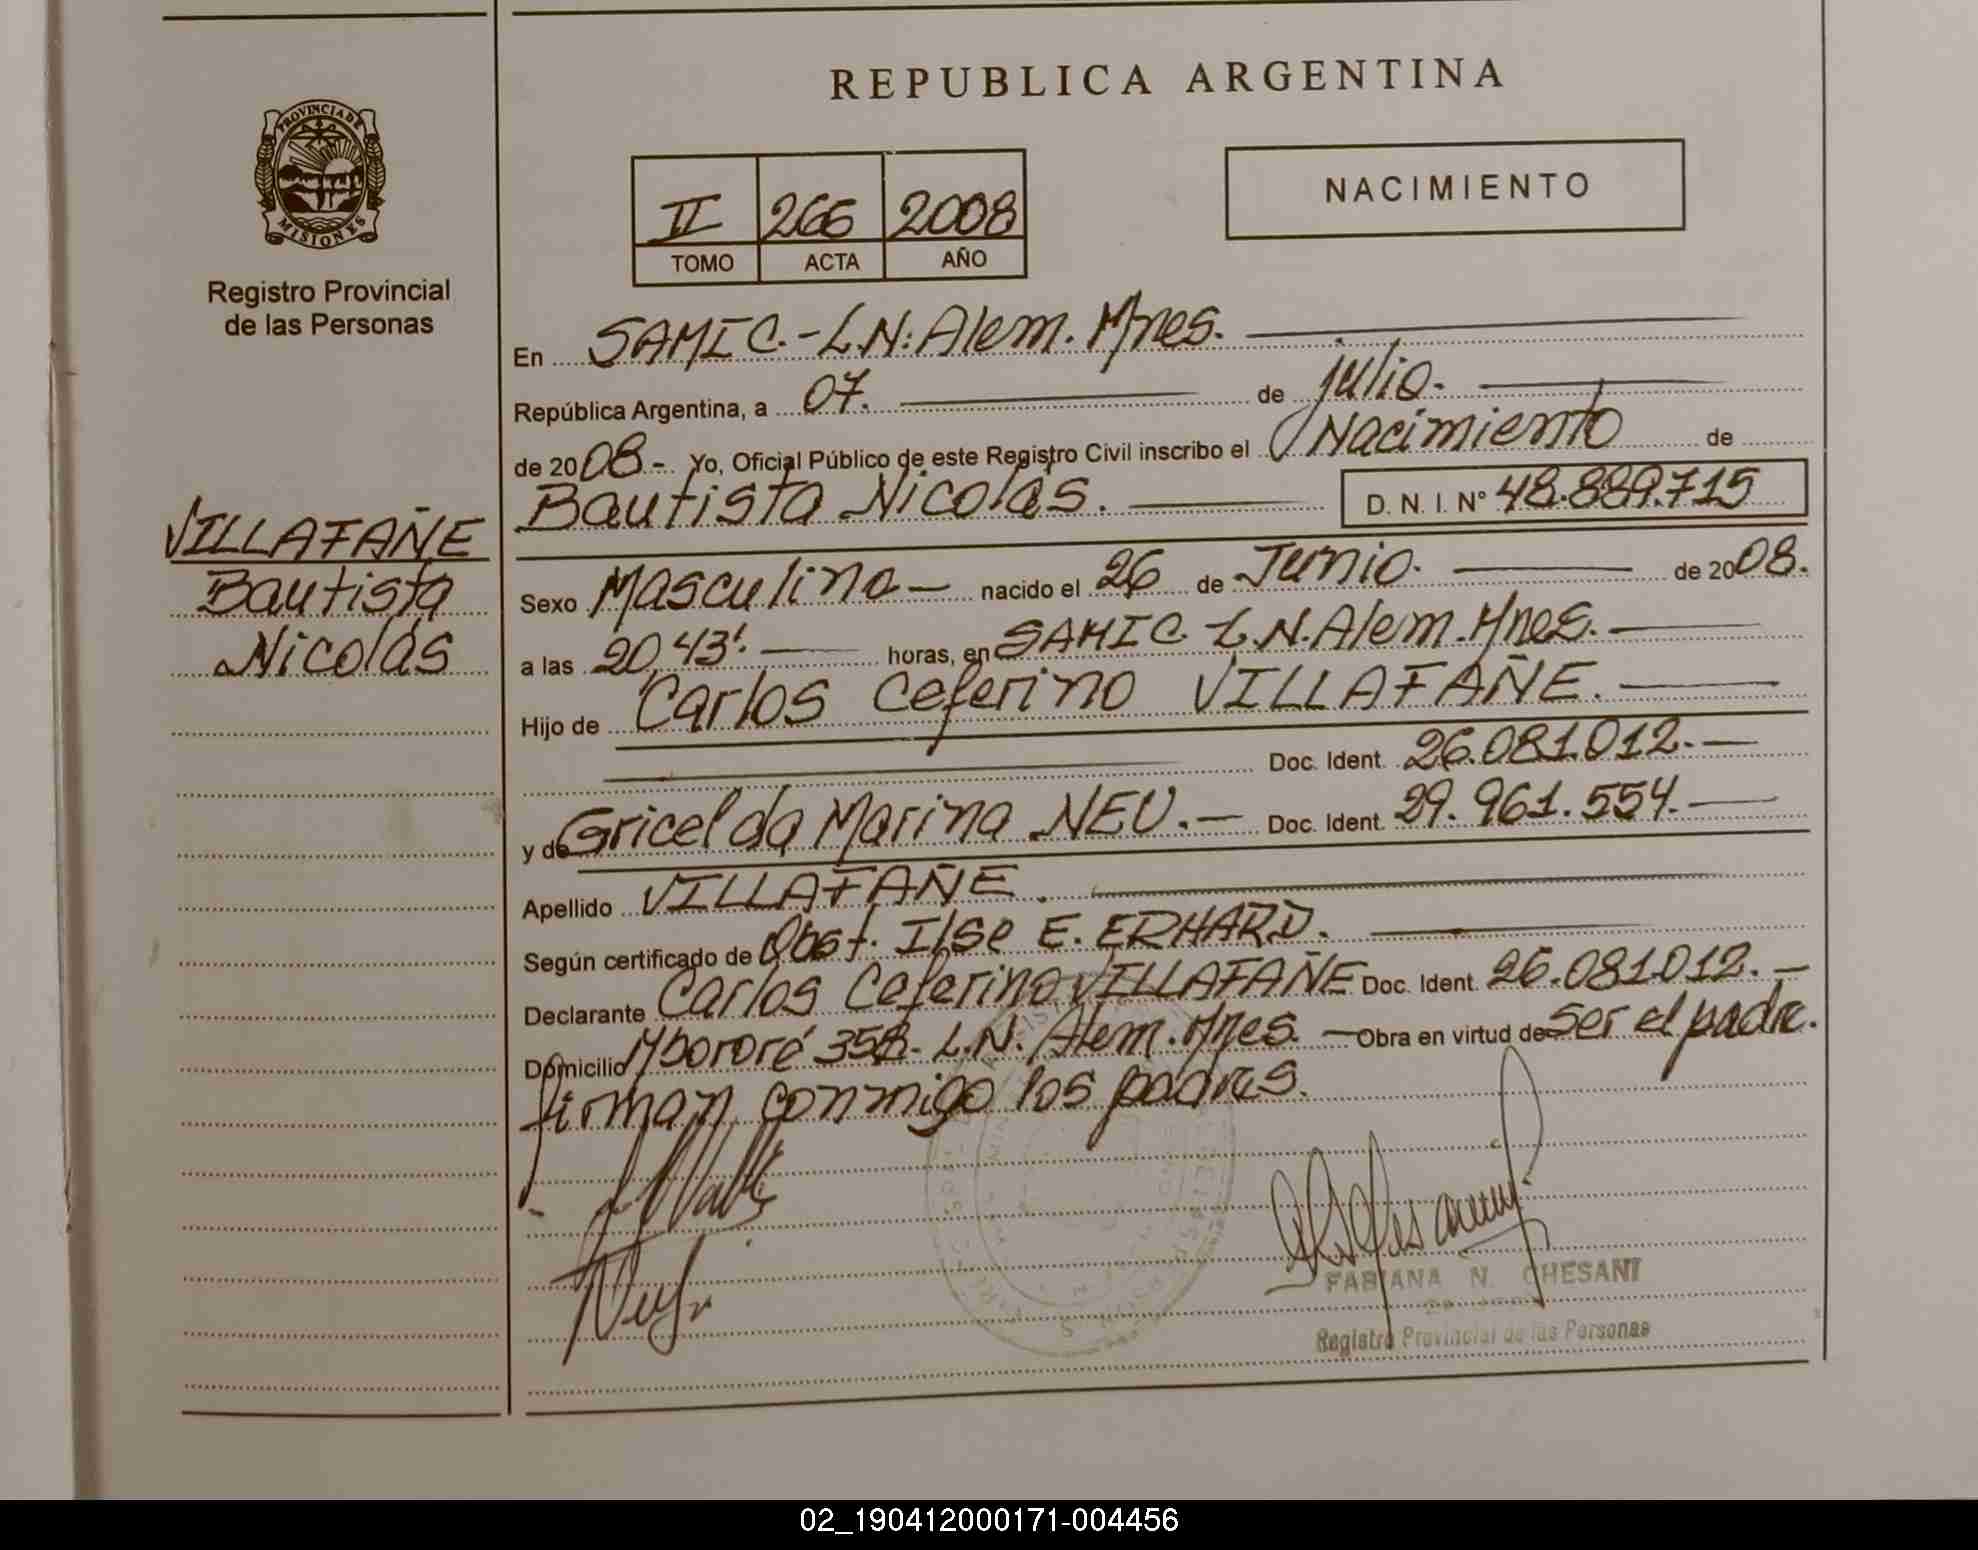 REPUBLICA ARGENTINA
PROVINCIA DE
MISIONES
Registro Provincial
de las Personas
II 266 2008
TOMO ACTA AÑO
NACIMIENTO
En SAMIC.-L.N. Alem. Mnes.
República Argentina, a 07. de julio.
de 2008.- Yo, Oficial Público de este Registro Civil inscribo el Nacimiento de
Bautista Nicolás. D. N. I. N° 48.889.715
VILLAFAÑE
Bautista
Nicolás
Sexo Masculino nacido el 26 de Junio. de 2008.
a las 20,43'. horas, en SAMIC L.N. Alem. Mnes.
Hijo de Carlos Ceferino VILLAFAÑE.
Doc. Ident. 26.081.012.
y de Gricelda Marina NEU. Doc. Ident. 29.961.554.
Apellido VILLAFAÑE.
Según certificado de Obst. Ilse E. ERHARD.
Declarante Carlos Ceferino VILLAFAÑE Doc. Ident. 26.081.012.
Domicilio Mbororé 358. L.N. Alem. Mnes. Obra en virtud de Ser el padre.
firman conmigo los padres.
FABIANA N. CHESANI
Registro Provincial de las Personas
02_190412000171-004456